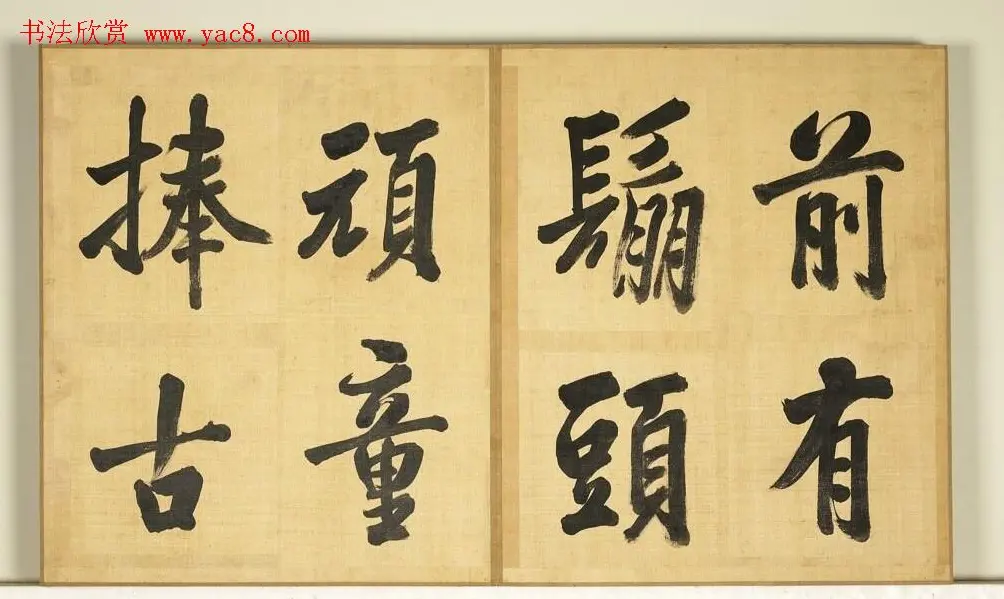 书法欣赏 www.yac8.com
前有
鬅頭
頑童
捧古